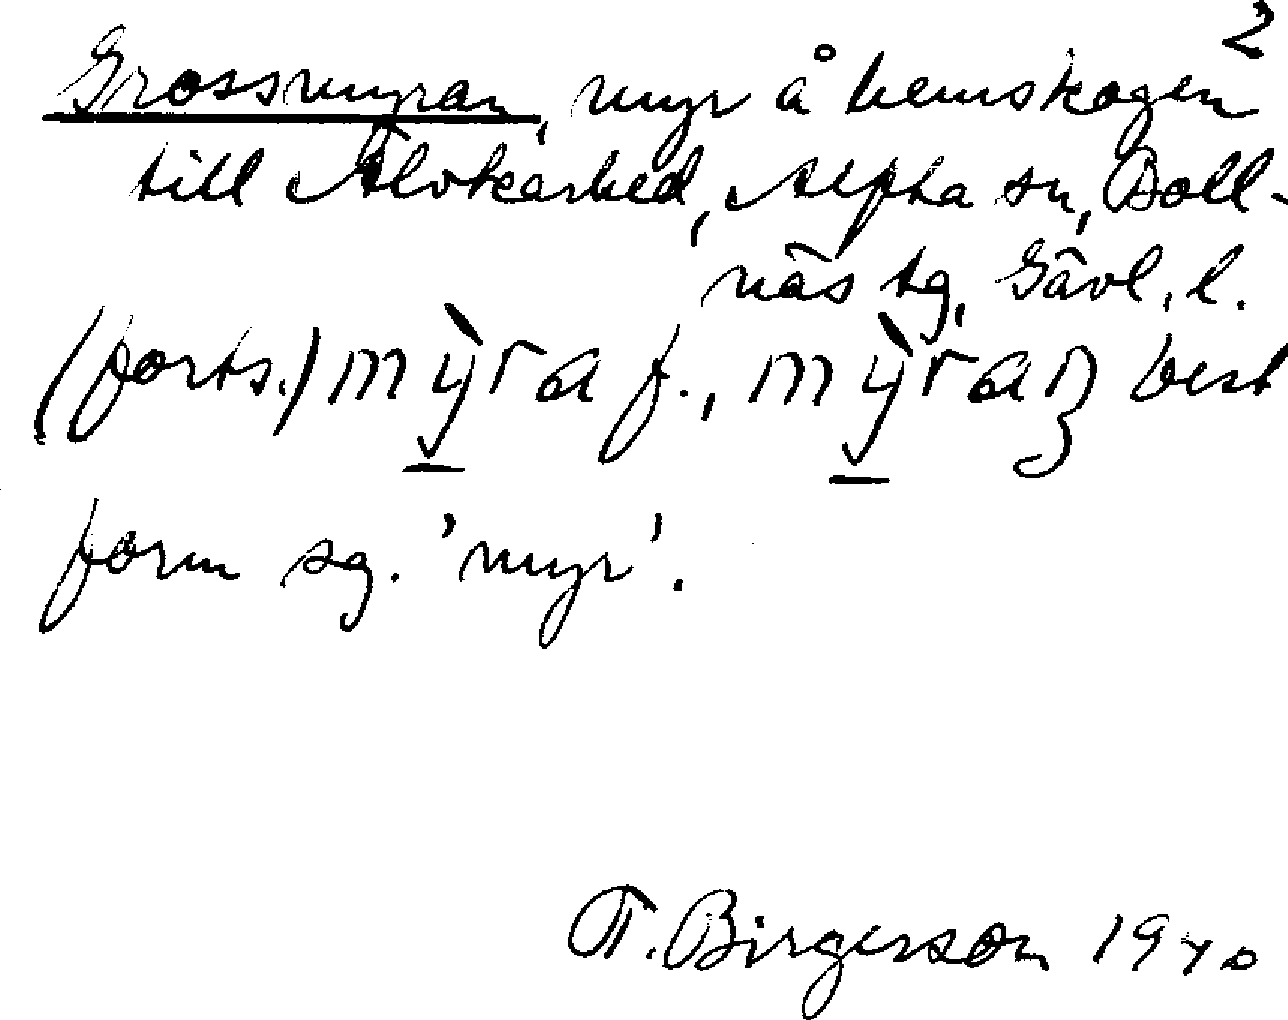 2
Grossmyran, myr å hemskogen
till Älvkarhed, Alfta sn, Boll-
näs tg, Gävl. l.
(forts.) mỳra f., mỳraṇ best
form sg. 'myr'.
T. Birgerson 1940